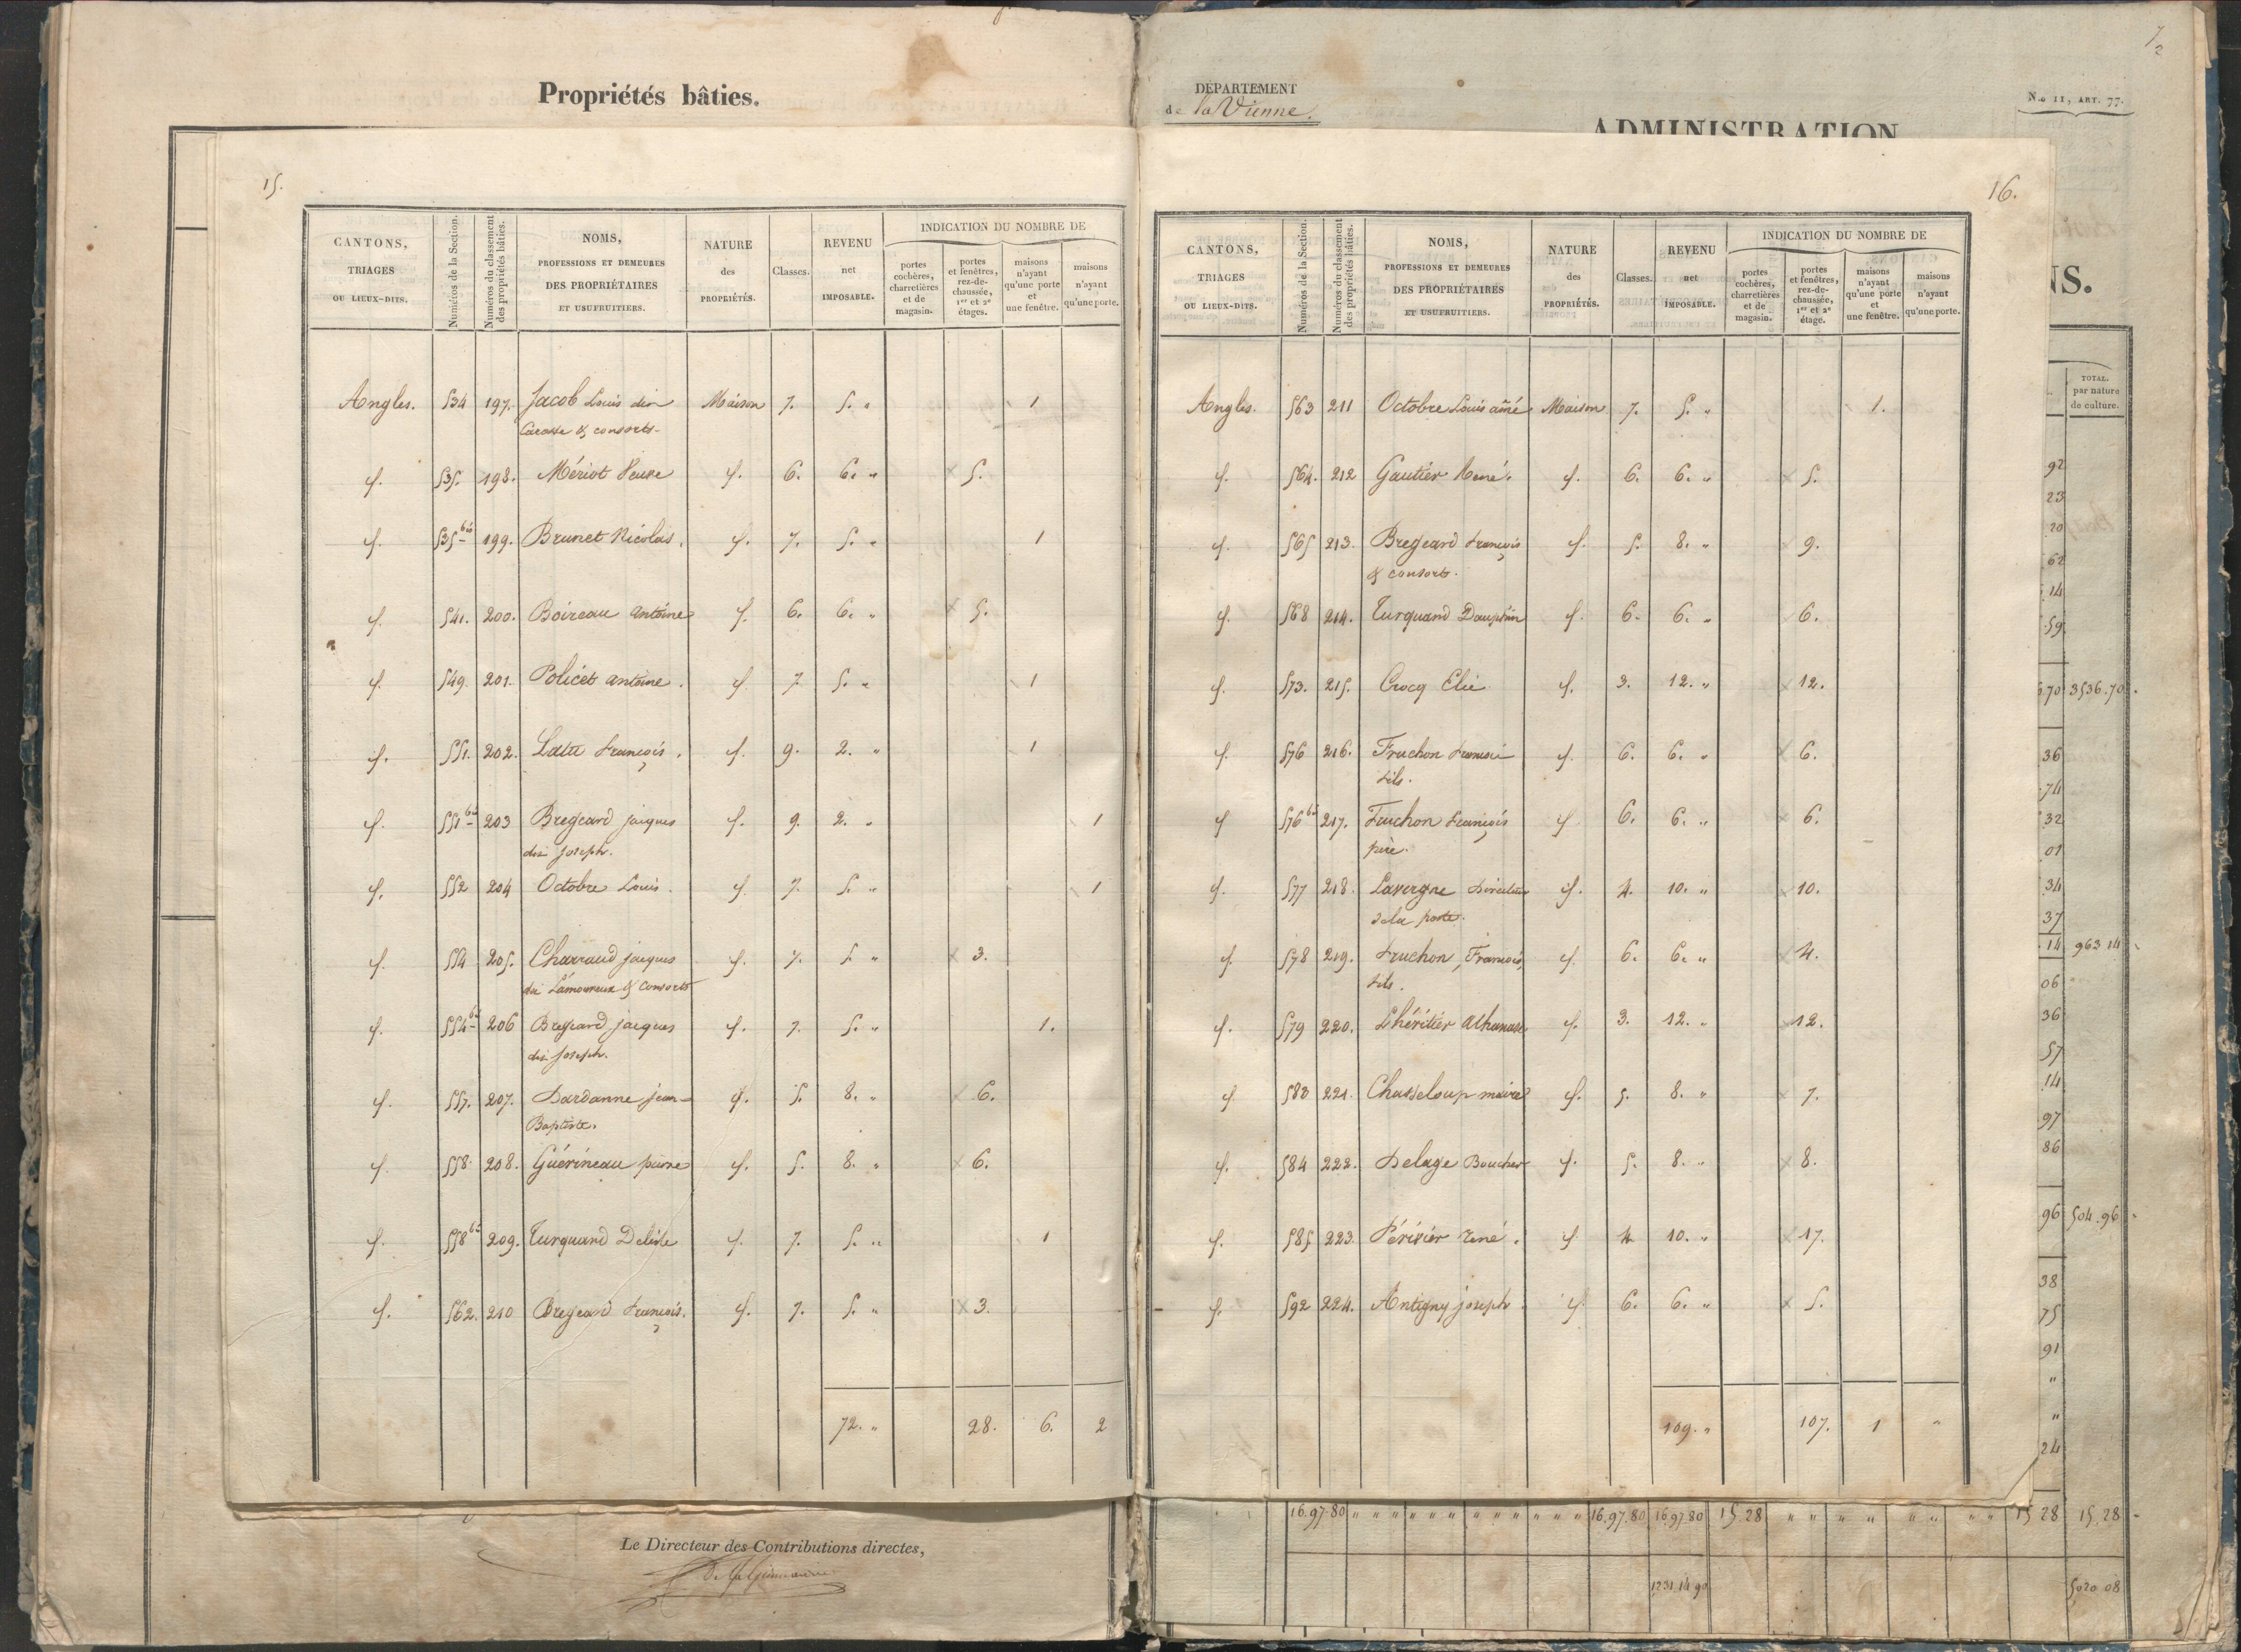 Propriétés bâties.
15.
CANTONS, TRIAGES OU LIEUX-DITS. Numéros de la Section. Numéros du classement des propriétés bâties. NOMS, PROFESSIONS ET DEMEURES DES PROPRIÉTAIRES ET USUFRUITIERS. NATURE des PROPRIÉTÉS. Classes. REVENU net IMPOSABLE. INDICATION DU NOMBRE DE
portes cochères, charretières et de magasin. portes et fenêtres, rez-de-chaussée, 1er et 2e étages. maisons n'ayant qu'une porte et une fenêtre. maisons n'ayant qu'une porte.
Angles. 534 197. Jacob Louis dit Maison 7. 5. " 1
Carosse & consorts
if. 535. 198. Mériot Veuve if. 6. 6. " x 5.
if. 535 bis 199. Brunet Nicolas. if. 7. 5. " 1
if. 541. 200. Boireau antoine if. 6. 6. " x 5.
if. 549. 201. Policet antoine. if 7. 5. " 1
if. 551. 202. Latu françois. if. 9. 2. " 1
if. 551 bis 203 Bregeard jacques if. 9. 2. " 1
dit joseph.
if. 552 204 Octobre Louis. if. 7. 5. " 1
if. 554 205. Charraud jacques if. 7. 5. " x 3.
dit Lamoureux & consorts
if. 554 bis 206 Bregeard jacques if. 7. 5. " 1.
dit joseph.
if. 557. 207. Dardanne jean- if. 5. 8. " x 6.
Baptiste.
if. 558. 208. Guérineau pierre if. 5. 8. " x 6.
if. 558 bis 209. Turquand Delisle if. 7. 5. " 1
if. 562. 210 Bregeard françois. if. 7. 5. " x 3.
72. " 28. 6. 2
Le Directeur des Contributions directes,
DÉPARTEMENT
de la Vienne.
N.o 11, ART. 77.
ADMINISTRATION
NS.
16.
CANTONS, TRIAGES OU LIEUX-DITS. Numéros de la Section. Numéros du classement des propriétés bâties. NOMS, PROFESSIONS ET DEMEURES DES PROPRIÉTAIRES ET USUFRUITIERS. NATURE des PROPRIÉTÉS. Classes. REVENU net IMPOSABLE. INDICATION DU NOMBRE DE
portes cochères, charretières et de magasin. portes et fenêtres, rez-de-chaussée, 1er et 2e étage. maisons n'ayant qu'une porte et une fenêtre. maisons n'ayant qu'une porte.
Angles. 563 211 Octobre Louis ainé Maison 7. 5. " 1.
if. 564. 212 Gautier René. if. 6. 6. " x 5.
if. 565 213. Bregeard françois if. 5. 8. " 9.
& consorts.
if. 568 214. Turquand Dauphin if. 6. 6. " 6.
if. 573. 215. Crocq Elie if. 3. 12. " x 12.
if. 576 216. Fruchon francois if. 6. 6. " x 6.
fils.
if 576 bis 217. Fruchon françois if 6. 6. " x 6.
père.
if. 577 218. Lavergne Directeur if. 4. 10. " x 10.
dela poste.
if. 578 219. fruchon, François, if. 6. 6. " x 4.
fils.
if. 579 220. Lhéritier Athanase. if. 3. 12. " x 12.
if 583 221. Chasseloup maire if. 5. 8. " x 7.
if. 584 222. Delage Boucher if. 5. 8. " x 8.
if. 585 223. Périvier René. if 4 10. " x 17.
if. 592 224. Antigny joseph if. 6. 6. " x 5.
109. " 107. 1 "
TOTAL. par nature de culture.
92
23
20
62
14
59
6.70 3536.70
36
74
32
01
34
37
14 963 14
06
36
57
14
97
86
96 504.96
38
75
91
"
"
24
16.97.80 " " " " " " " " " " 16.97.80 16.97.80 15.28 " " " " " " " " 15 28 15.28
1231.14.90 5020 08